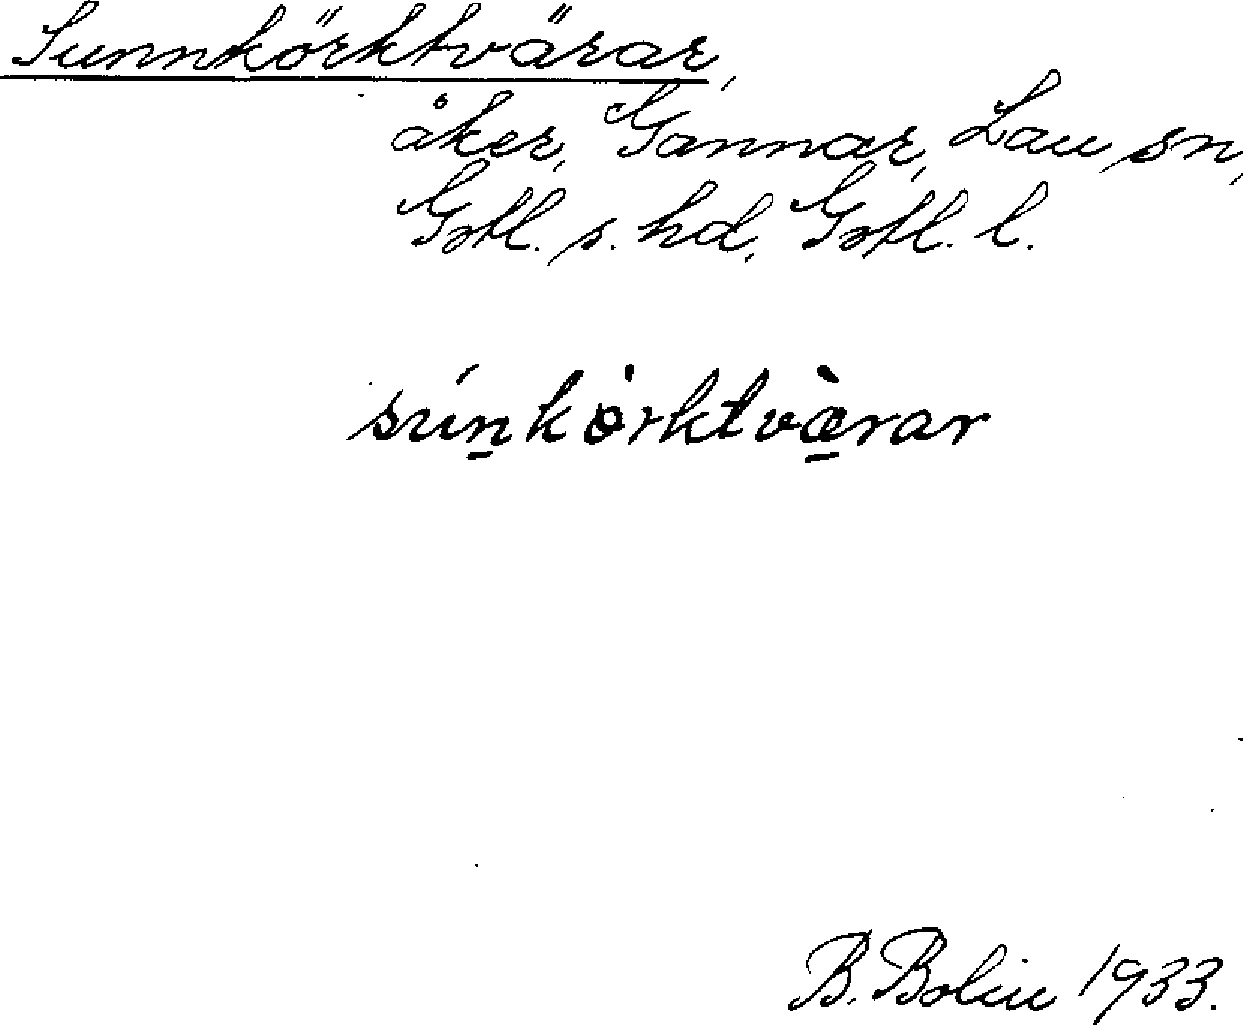 Sunnkörktvärar,
åker, Gannar, Lau sn,
Gotl. s. hd, Gotl. l.
sún̲kȯrktvæ̲̀rar
B. Bolin 1933.